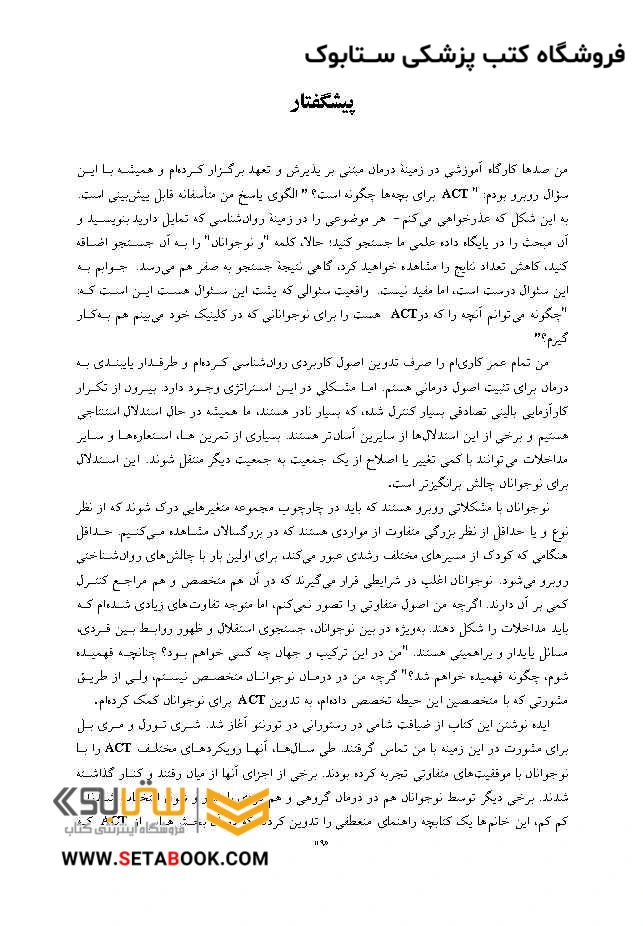 فروشگاه کتب پزشکی ستابوک
پیشگفتار
من صدها کارگاه آموزشی در زمینهٔ درمان مبتنی بر پذیرش و تعهد برگزار کرده‌ام و همیشه با این
سؤال روبرو بودم: " ACT برای بچه‌ها چگونه است؟ " الگوی پاسخ من متأسفانه قابل پیش‌بینی است.
به این شکل که عذرخواهی می‌کنم- هر موضوعی را در زمینهٔ روان‌شناسی که تمایل دارید بنویسید و
آن مبحث را در پایگاه داده علمی ما جستجو کنید؛ حالا، کلمه "و نوجوانان" را به آن جستجو اضافه
کنید، کاهش تعداد نتایج را مشاهده خواهید کرد، گاهی نتیجهٔ جستجو به صفر هم می‌رسد. جوابم به
این سئوال درست است، اما مفید نیست. واقعیت سئوالی که پشت این سئوال هست این است که:
"چگونه می‌توانم آنچه را که درACT هست را برای نوجوانانی که در کلینیک خود می‌بینم هم به‌کار
گیرم؟"
من تمام عمر کاری‌ام را صرف تدوین اصول کاربردی روان‌شناسی کرده‌ام و طرفدار پایبندی به
درمان برای تثبیت اصول درمانی هستم. اما مشکلی در این استراتژی وجود دارد. بیرون از تکرار
کارآزمایی بالینی تصادفی بسیار کنترل شده، که بسیار نادر هستند، ما همیشه در حال استدلال استنتاجی
هستیم و برخی از این استدلال‌ها از سایرین آسان‌تر هستند. بسیاری از تمرین ها، استعاره‌ها و سایر
مداخلات می‌توانند با کمی تغییر یا اصلاح از یک جمعیت به جمعیت دیگر منتقل شوند. این استدلال
برای نوجوانان چالش برانگیزتر است.
نوجوانان با مشکلاتی روبرو هستند که باید در چارچوب مجموعه متغیرهایی درک شوند که از نظر
نوع و یا حداقل از نظر بزرگی متفاوت از مواردی هستند که در بزرگسالان مشاهده می‌کنیم. حداقل
هنگامی که کودک از مسیرهای مختلف رشدی عبور می‌کند، برای اولین بار با چالش‌های روان‌شناختی
روبرو می‌شود. نوجوانان اغلب در شرایطی قرار می‌گیرند که در آن هم متخصص و هم مراجع کنترل
کمی بر آن دارند. اگرچه من اصول متفاوتی را تصور نمی‌کنم، اما متوجه تفاوت‌های زیادی شده‌ام که
باید مداخلات را شکل دهند. به‌ویژه در بین نوجوانان، جستجوی استقلال و ظهور روابط بین فردی،
مسائل پایدار و پراهمیتی هستند. "من در این ترکیب و جهان چه کسی خواهم بود؟ چنانچه فهمیده
شوم، چگونه فهمیده خواهم شد؟" گرچه من در درمان نوجوانان متخصص نیستم، ولی از طریق
مشورتی که با متخصصین این حیطه تخصص داده‌ام، به تدوین ACT برای نوجوانان کمک کرده‌ام.
ایده نوشتن این کتاب از ضیافت شامی در رستورانی در تورنتو آغاز شد. شری تورل و مری بل
برای مشورت در این زمینه با من تماس گرفتند. طی سال‌ها، آنها رویکردهای مختلف ACT را با
نوجوانان با موفقیت‌های متفاوتی تجربه کرده بودند. برخی از اجزای آنها از میان رفتند و کنار گذاشته
شدند. برخی دیگر توسط نوجوانان هم در درمان گروهی و هم
کم کم، این خانم‌ها یک کتابچه راهنمای منعطفی را تدوین کردند از ACT که
ستابوک
فروشگاه اینترنتی کتاب
WWW.SETABOOK.COM